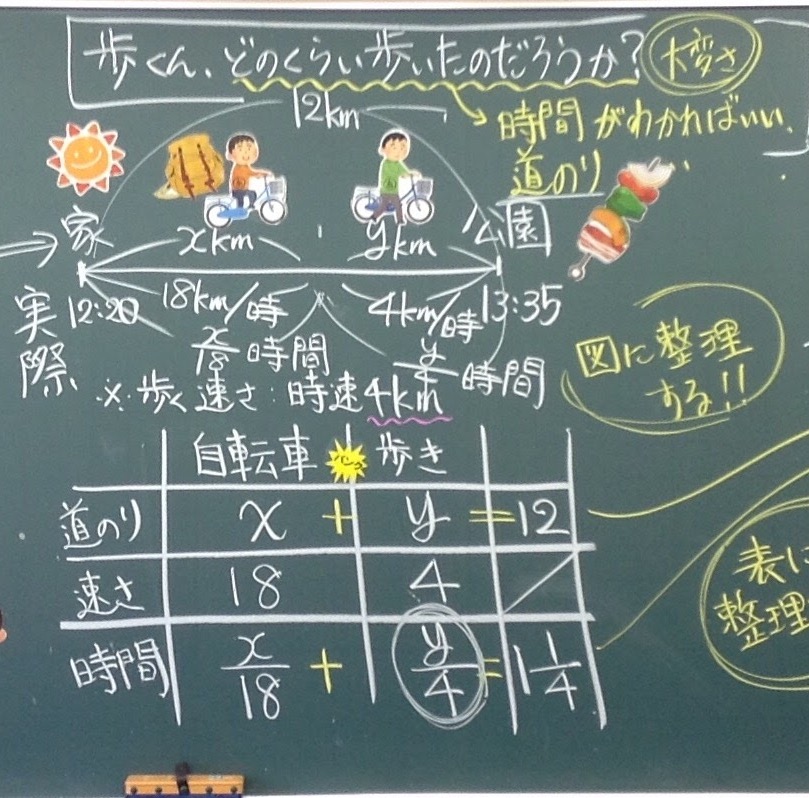 歩くん、どのくらい歩いたのだろうか?
大変さ
12km
時間がわかればいい。
道のり
家
xkm
ykm
公園
実際
12:20
18km/時
4km/時
13:35
x/18 時間
y/4 時間
図に整理
する!!
※歩く速さ:時速4km
自転車
歩き
道のり x + y = 12
速さ 18 4
時間 x/18 + y/4 = 1 1/4
表に
整理